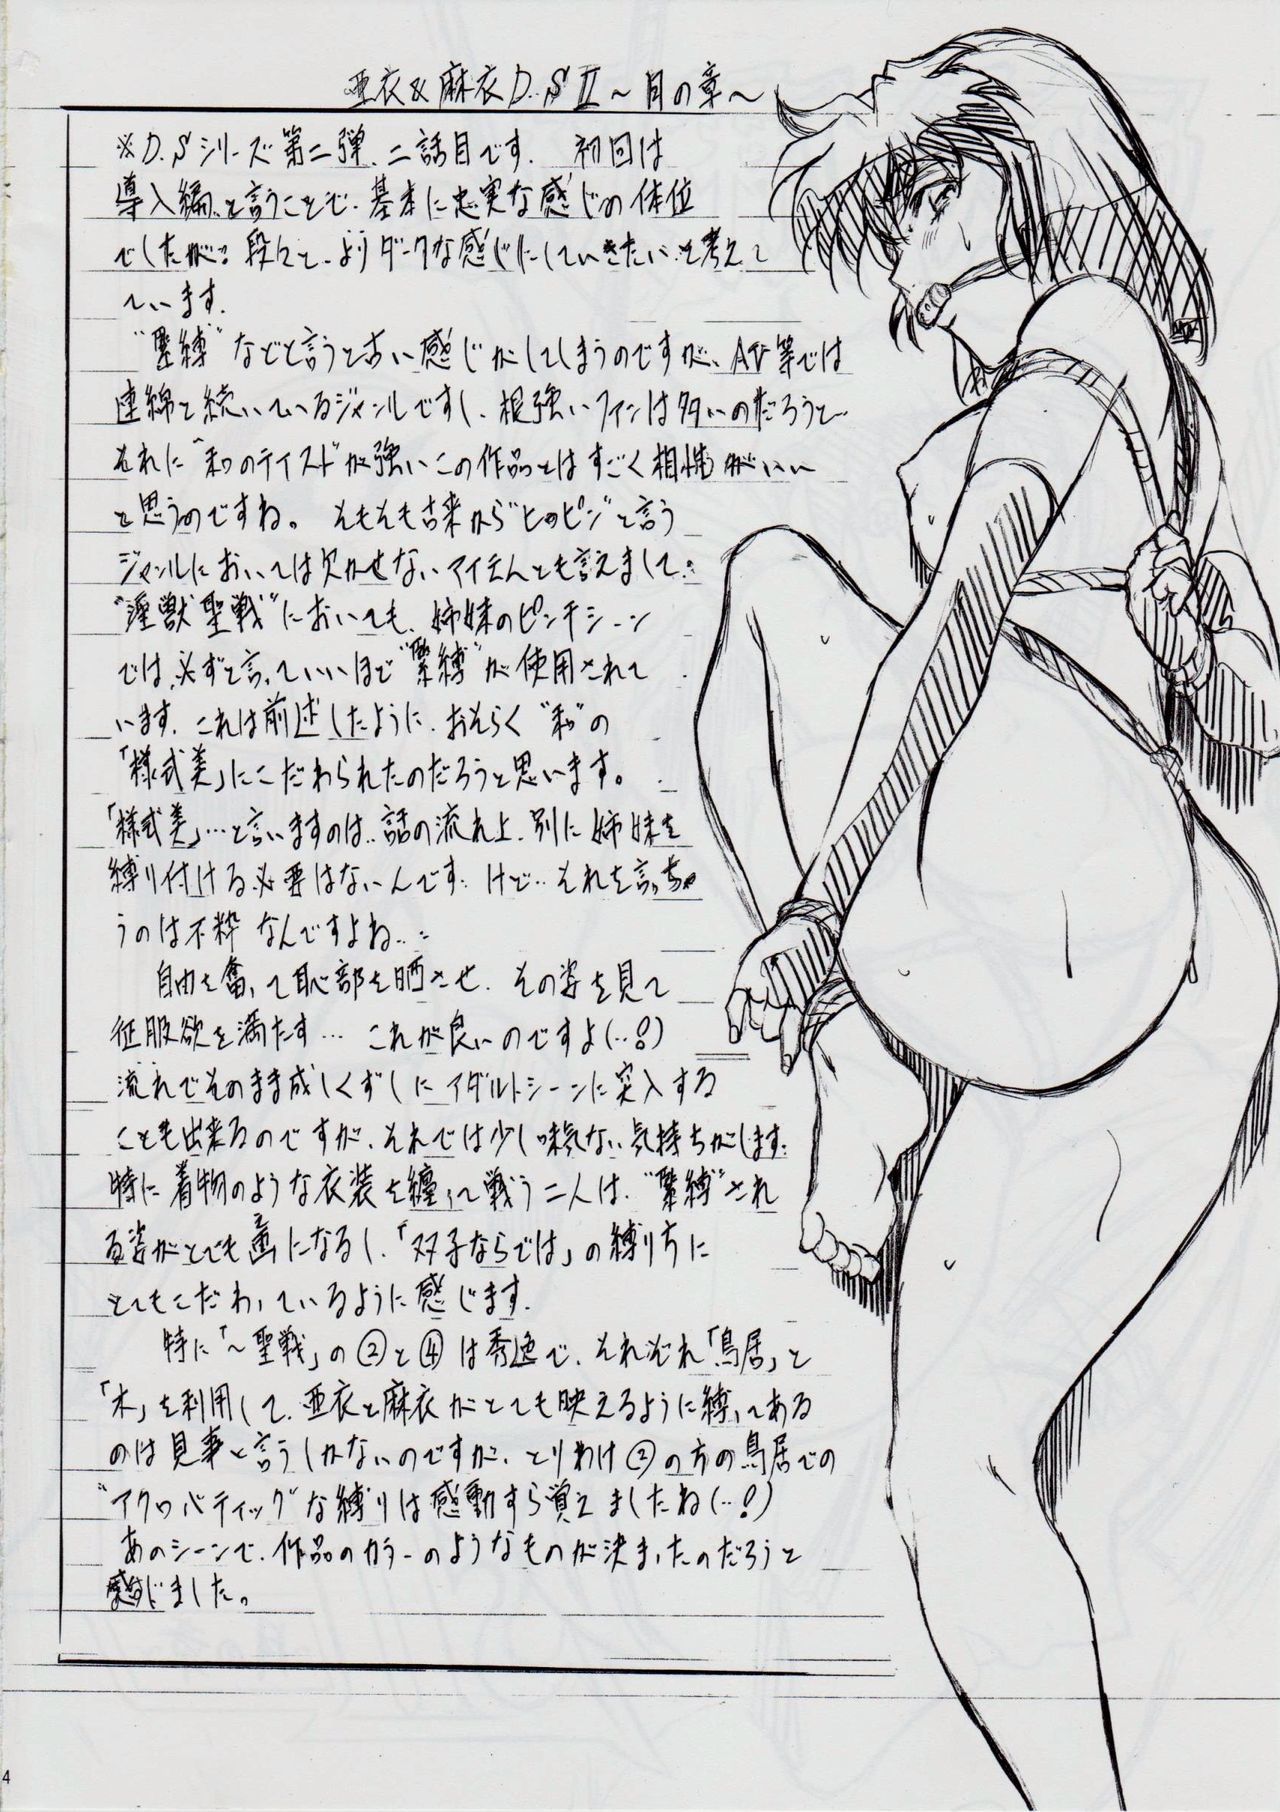 亜衣&麻衣D.SⅡ～月の章～
※D.Sシリーズ第二弾、二話目です。 初回は
導入編と言うことで、基本に忠実な感じの体位
でしたが‥段々と、よりダークな感じにしていきたいと考えて
います。
"緊縛"などと言うと古い感じがしてしまうのですが、AV等では
連綿と続いているジャンルですし、根強いファンは多いのだろうと‥
それに"和のテイスト"が強いこの作品とはすごく相性がいい
と思うのですね。 そもそも古来から"ヒロピン"と言う
ジャンルにおいては欠かせないアイテムとも言えまして‥
"淫獣聖戦"においても、姉妹のピンチシーン
では、必ずと言っていいほど"緊縛"が使用されて
います。これは前述したように、おそらく"和"の
「様式美」にこだわられたのだろうと思います。
「様式美」…と言いますのは、話の流れ上、別に姉妹を
縛り付ける必要はないんです‥けど‥それを言っちゃ
うのは不粋なんですよね‥
自由を奪って恥部を晒させ、その姿を見て
征服欲を満たす… これが良いのですよ(‥!)
流れでそのまま成しくずしにアダルトシーンに突入する
ことも出来るのですが、それでは少し味気ない気持ちがします‥
特に着物のような衣装を纏って戦う二人は、"緊縛"され
る姿がとても画になるし、「双子ならでは」の縛りちに
とてもこだわっているように感じます。
特に「～聖戦」の②と④は秀逸で、それぞれ「鳥居」と
「木」を利用して、亜衣と麻衣がとても映えるように縛ってある
のは見事と言うしかないのですが、とりわけ②の方の鳥居での
"アクロバティック"な縛りは感動すら覚えましたね(‥!)
あのシーンで、作品のカラーのようなものが決まったのだろうと
感じました。
4